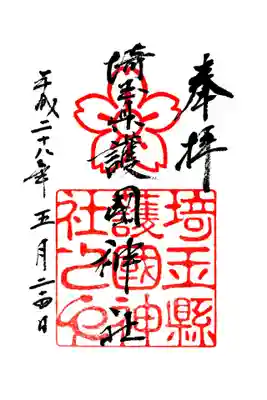 奉拝
埼玉県護国神社
埼玉縣
護國神
社之印
平成二十八年五月二十四日